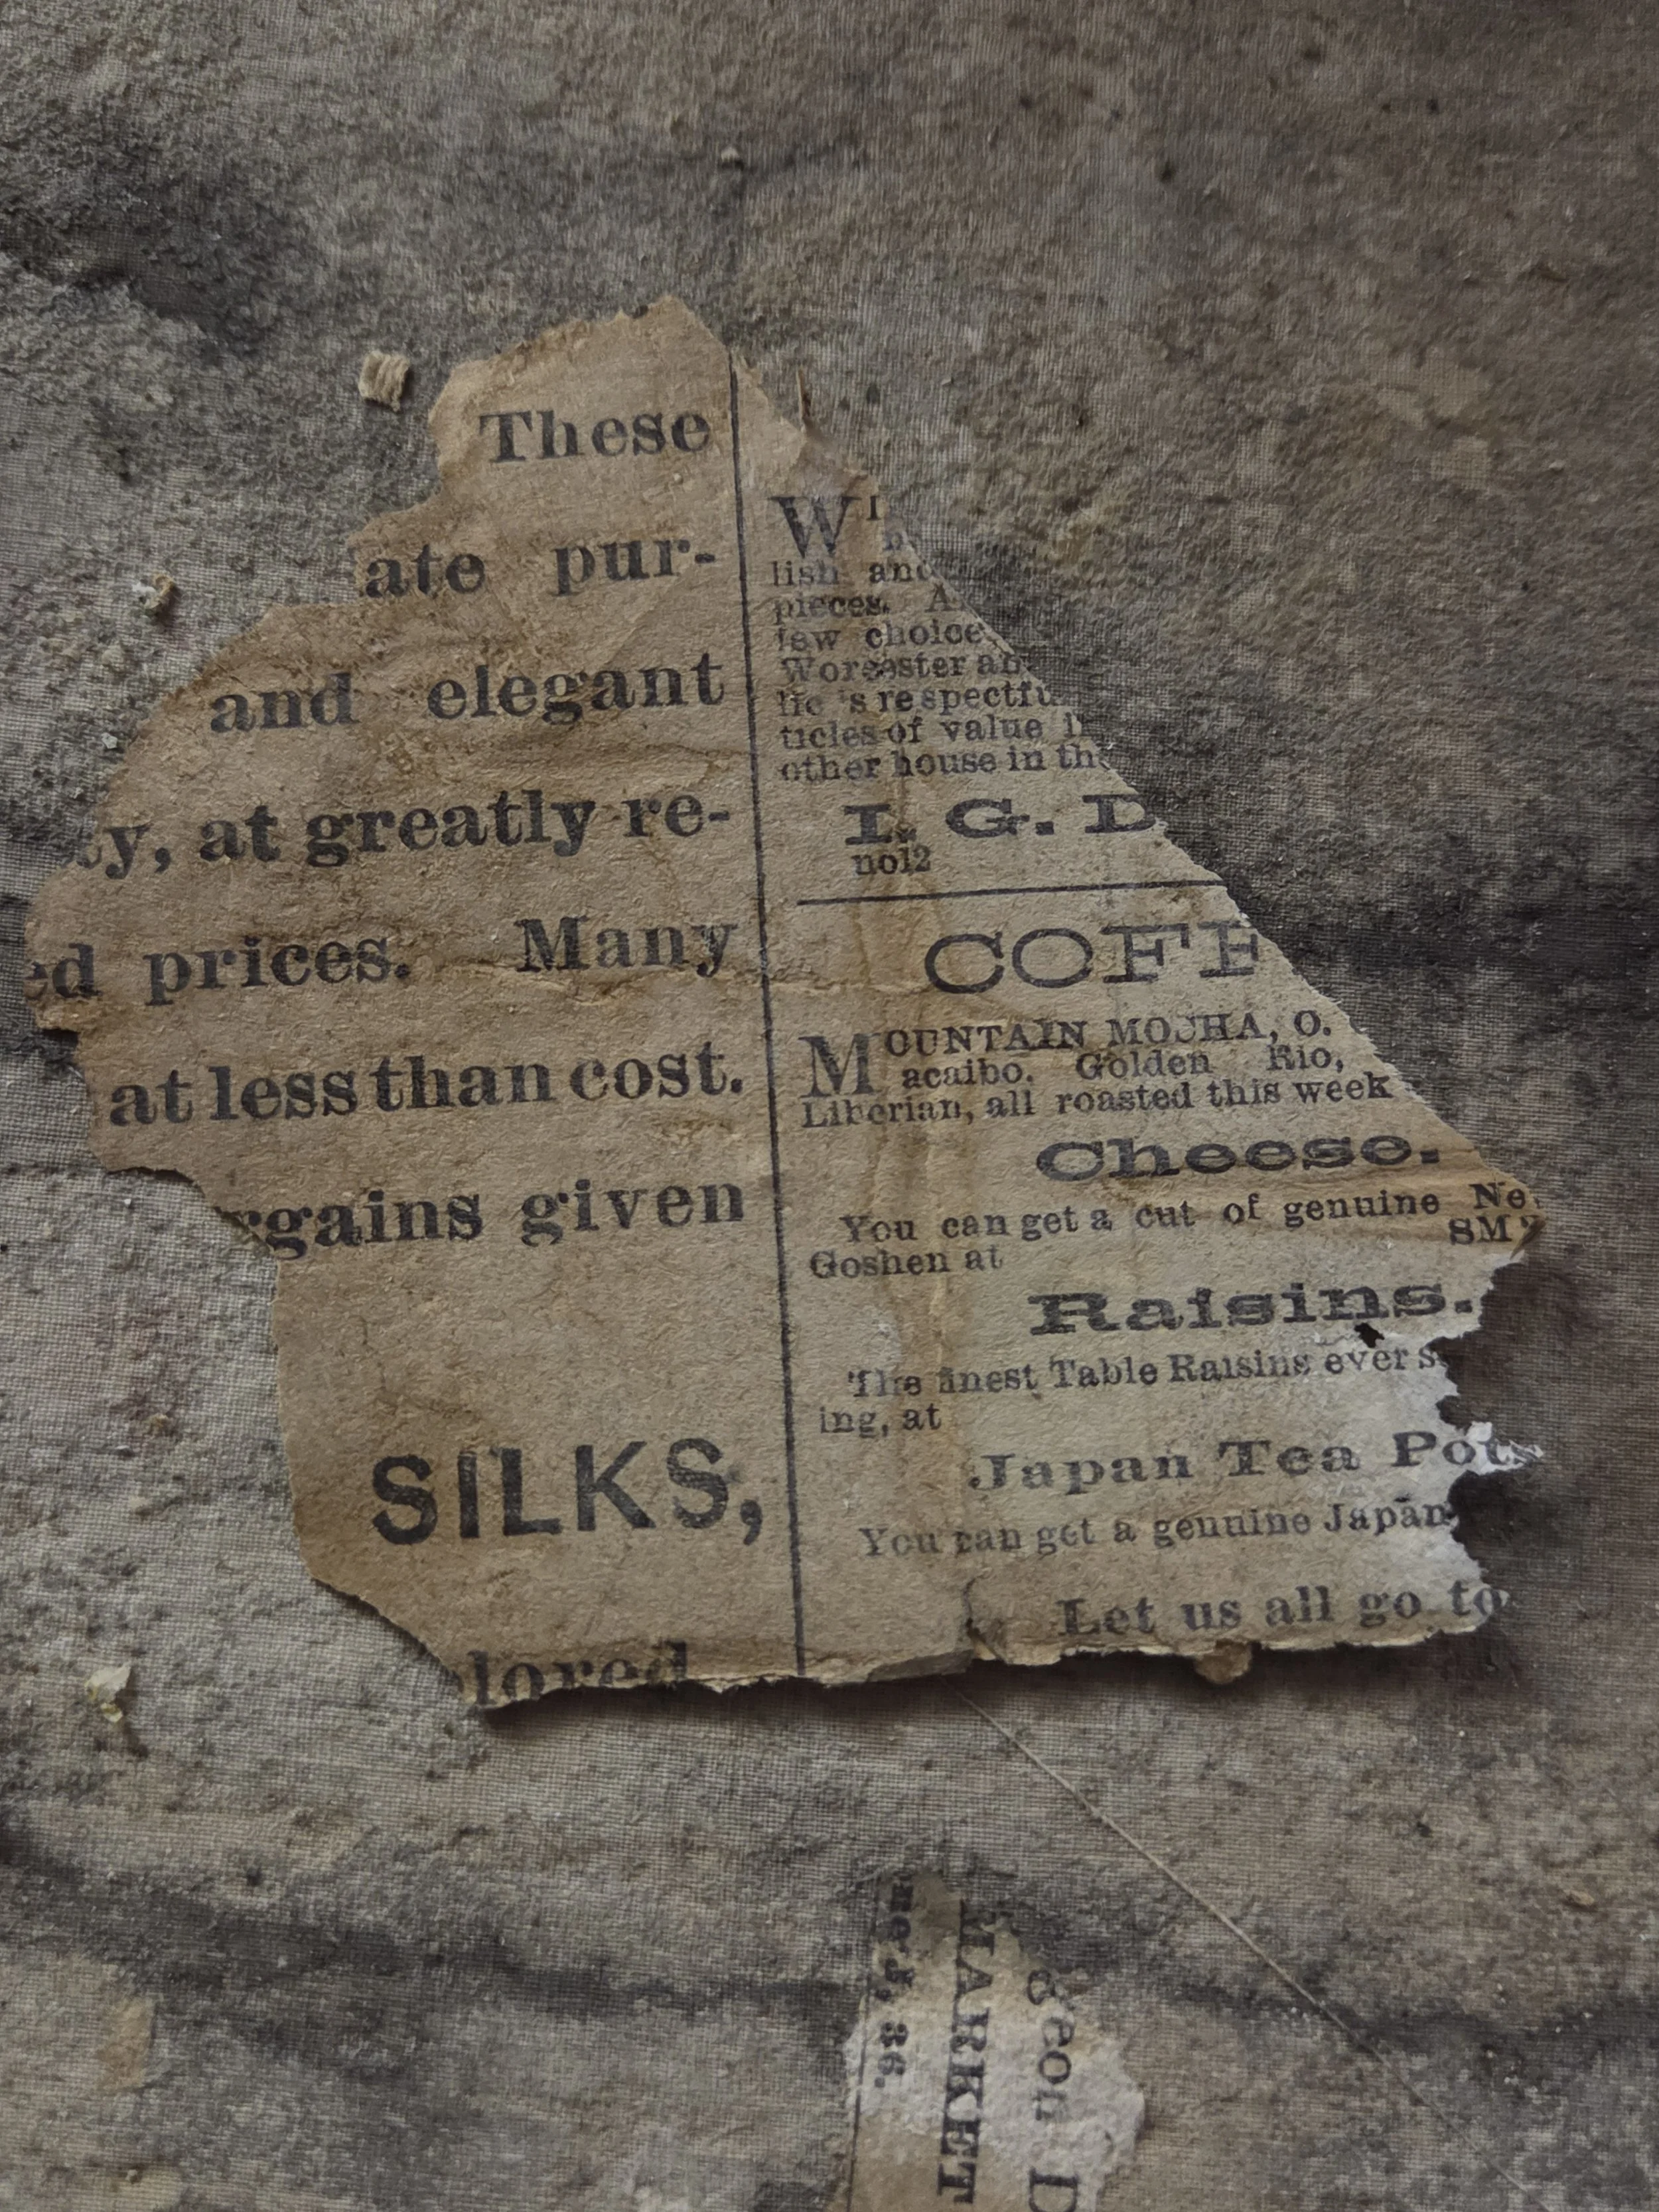 These
ate pur-
and elegant
ty, at greatly re-
ed prices. Many
at less than cost.
rgains given
SILKS,
lored
W
lish and
pieces. A
few choice
Worcester an
He 's respectfu
ticles of value
other house in th
I. G. D
no12
COFF
MOUNTAIN MOCHA, O.
acaibo. Golden Rio,
Liberian, all roasted this week
Cheese.
You can get a cut of genuine Ne
Goshen at SM
Raisins.
The finest Table Raisins ever s
ing, at
Japan Tea Pots
You can get a genuine Japan
Let us all go to
geon D
MARKET
36.